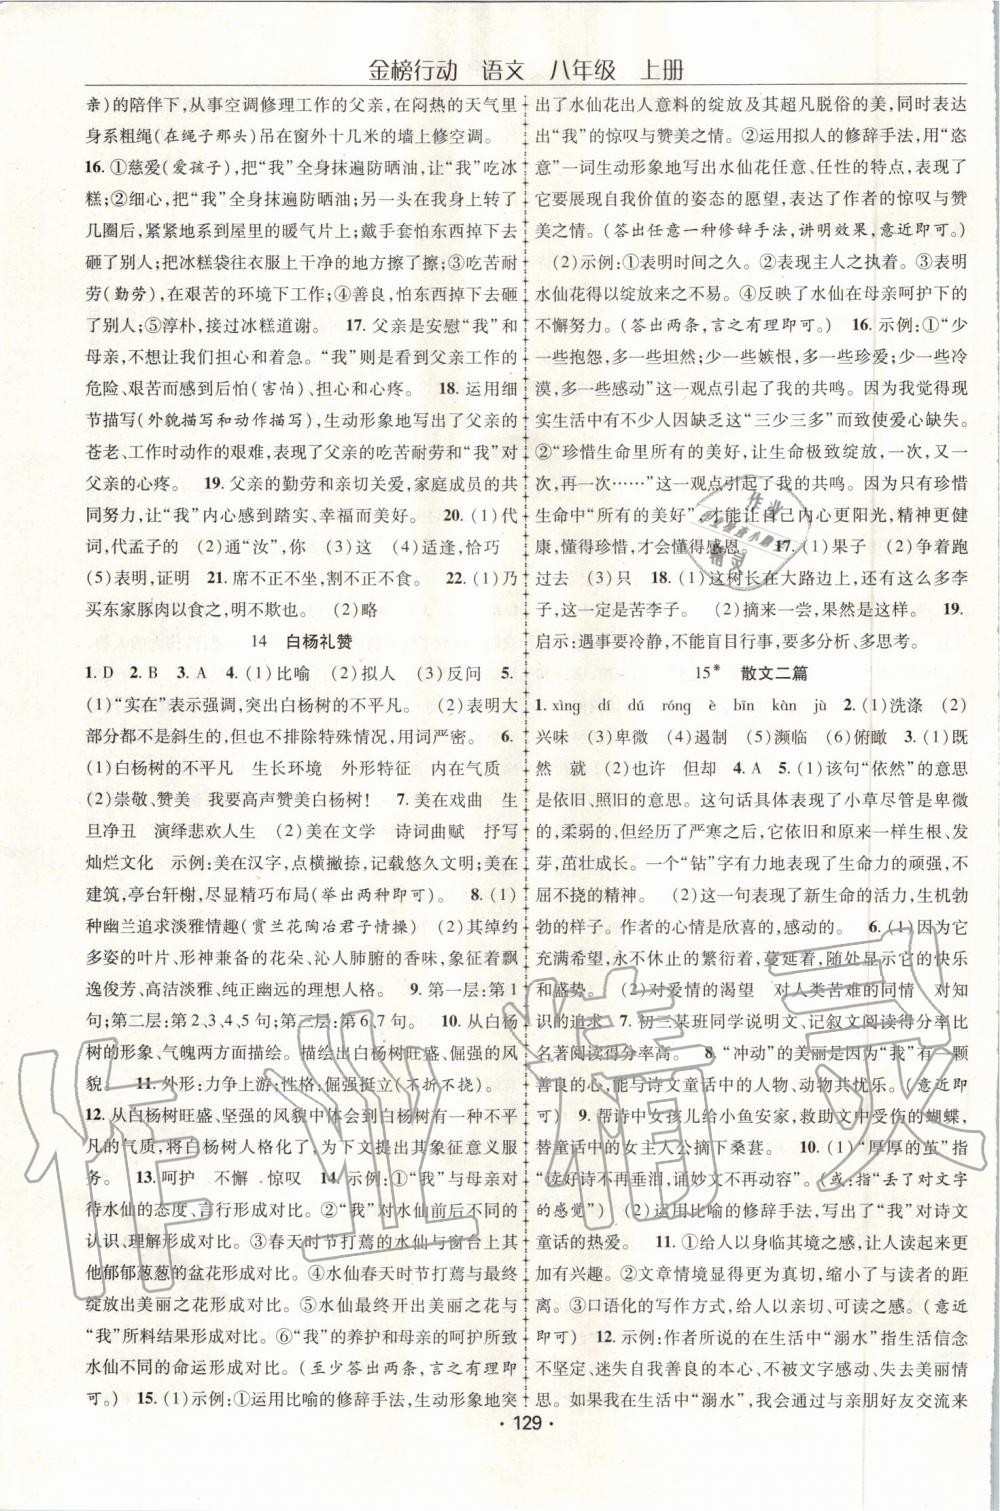 金榜行动 语文 八年级 上册
亲)的陪伴下,从事空调修理工作的父亲,在闷热的天气里
身系粗绳(在绳子那头)吊在窗外十几米的墙上修空调。
16. ①慈爱(爱孩子),把“我”全身抹遍防晒油,让“我”吃冰
糕;②细心,把“我”全身抹遍防晒油;另一头在我身上转了
几圈后,紧紧地系到屋里的暖气片上;戴手套怕东西掉下去
砸了别人;把冰糕袋往衣服上干净的地方擦了擦;③吃苦耐
劳(勤劳),在艰苦的环境下工作;④善良,怕东西掉下去砸
了别人;⑤淳朴,接过冰糕道谢。 17. 父亲是安慰“我”和
母亲,不想让我们担心和着急。“我”则是看到父亲工作的
危险、艰苦而感到后怕(害怕)、担心和心疼。 18. 运用细
节描写(外貌描写和动作描写),生动形象地写出了父亲的
苍老、工作时动作的艰难,表现了父亲的吃苦耐劳和“我”对
父亲的心疼。 19. 父亲的勤劳和亲切关爱,家庭成员的共
同努力,让“我”内心感到踏实、幸福而美好。 20. (1)代
词,代孟子的 (2)通“汝”,你 (3) (4)适逢,恰巧
(5)表明,证明 21. 席不正不坐,割不正不食。 22. (1)乃
买东家豚肉以食之,明不欺也。 (2)略
14 白杨礼赞
1. D 2. B 3. A 4. (1)比喻 (2)拟人 (3)反问 5.
(1)“实在”表示强调,突出白杨树的不平凡。 (2)表明大
部分都不是斜生的,但也不排除特殊情况,用词严密。 6.
(1)白杨树的不平凡 生长环境 外形特征 内在气质
(2)崇敬、赞美 我要高声赞美白杨树! 7. 美在戏曲 生
旦净丑 演绎悲欢人生 (2)美在文学 诗词曲赋 抒写
灿烂文化 示例:美在汉字,点横撇捺,记载悠久文明;美在
建筑,亭台轩榭,尽显精巧布局(举出两种即可) 8. (1)一
种幽兰追求淡雅情趣(赏兰花陶冶君子情操) (2)其绰约
多姿的叶片、形神兼备的花朵、沁人肺腑的香味,象征着飘
逸俊芳、高洁淡雅、纯正幽远的理想人格。 9. 第一层:第1
句;第二层:第2、3、4、5句;第三层:第6、7句。 10. 从白杨
树的形象、气魄两方面描绘。描绘出白杨树旺盛、倔强的风
貌。 11. 外形:力争上游;性格:倔强挺立(不折不挠)
12. 从白杨树旺盛、坚强的风貌中体会到白杨树有一种不平
凡的气质,将白杨树人格化了,为下文提出其象征意义服
务。 13. 呵护 不懈 惊叹 14. 示例:①“我”与母亲对
待水仙的态度、言行形成对比。②“我”对水仙前后不同的
认识、理解形成对比。③春天时节打蔫的水仙与窗台上其
他郁郁葱葱的盆花形成对比。④水仙春天时节打蔫与最终
绽放出美丽之花形成对比。⑤水仙最终开出美丽之花与
“我”所料结果形成对比。⑥“我”的养护和母亲的呵护所致
水仙不同的命运形成对比。(至少答出两条,言之有理即
可。) 15. (1)示例:①运用比喻的修辞手法,生动形象地突
出了水仙花出人意料的绽放及其超凡脱俗的美,同时表达
出“我”的惊叹与赞美之情。②运用拟人的修辞手法,用“恣
意”一词生动形象地写出水仙花任意、任性的特点,表现了
它要展现自我价值的姿态的愿望,表达了作者的惊叹与赞
美之情。(答出任意一种修辞手法,讲明效果,言之有理即可。)
(2)示例:①表明时间之久。②表现主人之执着。③表明
水仙花得以绽放来之不易。④反映了水仙在母亲呵护下的
不懈努力。(答出两条,言之有理即可。) 16. 示例:①“少
一些抱怨,多一些坦然;少一些嫉恨,多一些珍爱;少一些冷
漠,多一些感动”这一观点引起了我的共鸣。因为我觉得现
实生活中有不少人因缺乏这“三少三多”而使爱心缺失。
②“珍惜生命里所有的美好,让生命极致绽放,一次,又一
次,再一次……”这一观点引起了我的共鸣。因为只有珍惜
生命中“所有的美好”,才能让自己内心更阳光,精神更健
康,懂得珍惜,才会懂得感恩。 17. (1)果子 (2)争着跑
过去 (3)只 18. (1)这树长在大路边上,还有这么多李
子,这一定是苦李子。 (2)摘来一尝,果然是这样。 19.
启示:遇事要冷静,不能盲从,要多分析、多思考。
15* 散文二篇
1. xìng dí dú róng è bīn kàn jù 2. (1)洗涤 (2)
兴味 (3)卑微 (4)遏制 (5)濒临 (6)俯瞰 3. (1)既
然 就 (2)也许 但却 4. A 5. (1)该句“依然”的意思
是依旧、照旧的意思。这句话具体表现了小草尽管是卑微
的,柔弱的,但在经历了严寒之后,它依旧和原来一样生根、发
芽,茁壮成长。一个“钻”字有力地表达了生命力的顽强,不
屈不挠的精神。 (2)这一句表现了新生命的活力,生机勃
勃的样子。作者的心情是欣喜的,感动的。 6. (1)因为它
充满希望,永不止息的繁衍着,蔓延着,随处显示它的快乐
和盛势。 (2)对爱情的渴望 对人类苦难的同情 对知
识的追求 7. 初三某班同学说明文、记叙文阅读得分率比
名著阅读得分率高。 8. “冲动”的美丽是因为“我”有一颗
善良的心,能与诗文童话中的人物、动物共忧乐。(意近即
可) 9. 帮诗中女孩儿给小鱼安家,救助文中受伤的蝴蝶,
替童话中的女主人公摘下桑葚。 10. (1)“厚厚的茧”指
“读好诗不再垂泪,诵妙文不再动容”。(或:“丢失了对文字
的感觉”) (2)运用比喻的修辞手法,写出了“我”对诗文
童话的热爱。 11. ①给人以身临其境之感,让阅读起来更
加有兴趣。②文章情境显得更为真切,缩小了与读者的距
离。③口语化的写作方式,给人以亲切、可爱的感觉。(意近
即可) 12. 示例:作者所说的在生活中“溺水”指生活信念
不坚定、迷失自我善良的本心、不被文字感动、失去美丽情
思。如果我在生活中“溺水”,我会通过与亲朋好友交流来
· 129 ·
作业精灵
作业
精灵